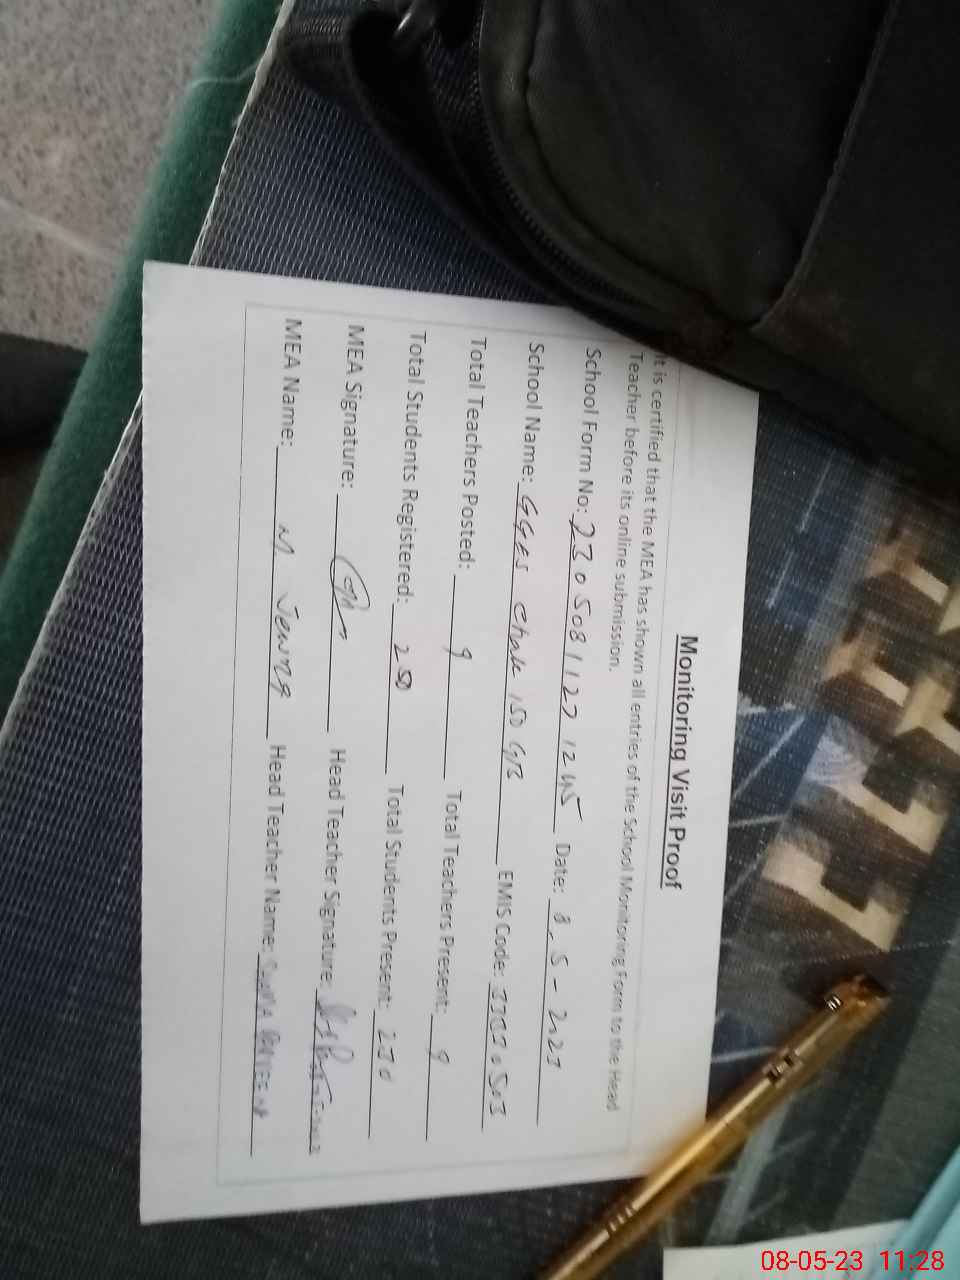 Monitoring Visit Proof
It is certified that the MEA has shown all entries of the School Monitoring Form to the Head
Teacher before its online submission.
School Form No: 23050811271245 Date: 8-5-2023
School Name: GGES Chak 150 G/B EMIS Code: 33030503
Total Teachers Posted: 9 Total Teachers Present: 9
Total Students Registered: 250 Total Students Present: 230
MEA Signature: Head Teacher Signature:
MEA Name: M. Head Teacher Name:
08-05-23 11:28